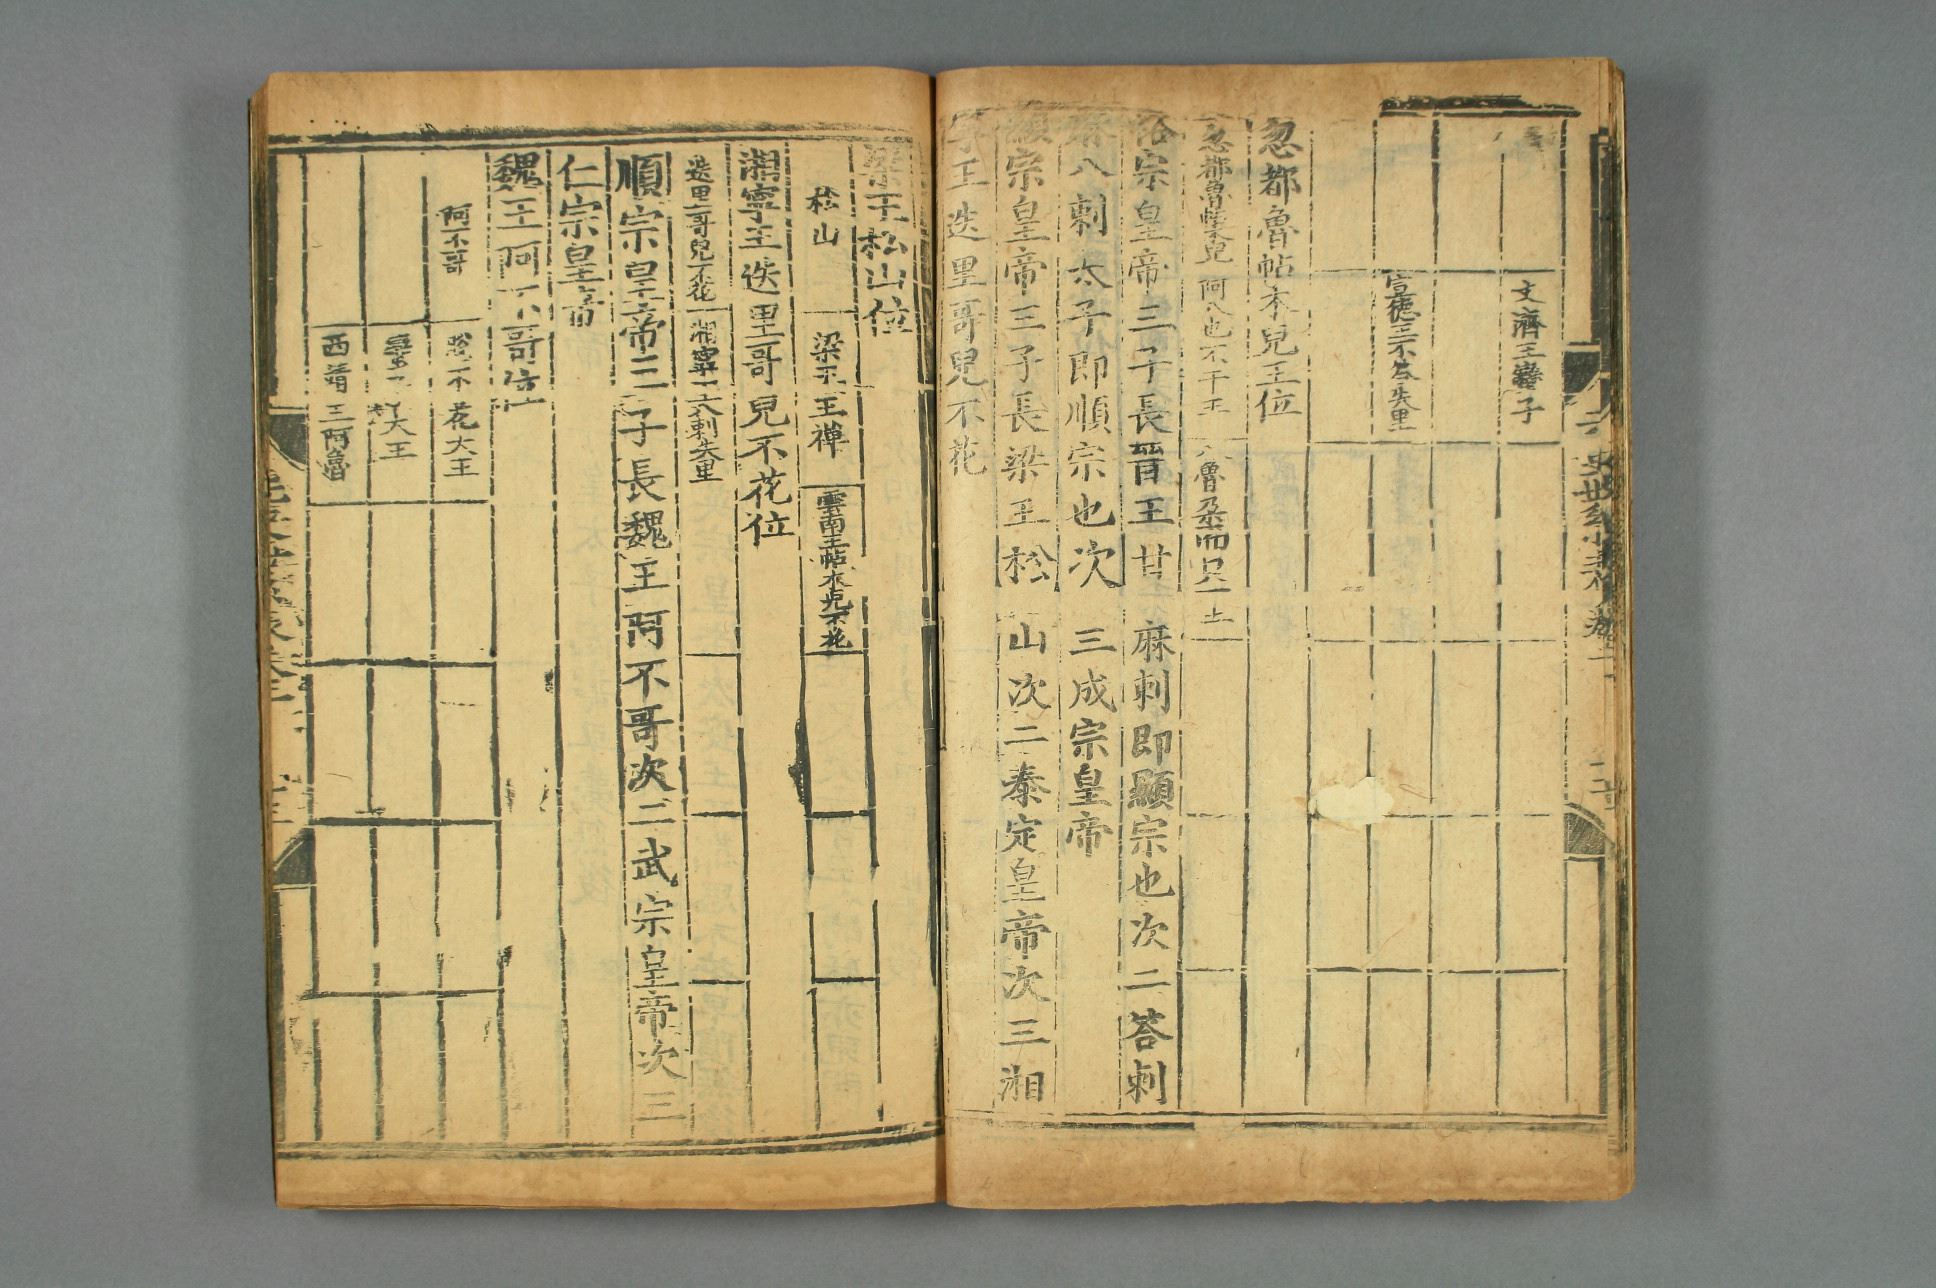 文濟王蠻子
宣德王不答失里
忽都魯帖木兒王位
忽都魯帖木兒
阿八也不干王
八魯朶而只王
裕宗皇帝三子長晉王甘麻刺即顯宗也次二荅剌
麻八剌太子即順宗也次三成宗皇帝
顯宗皇帝三子長梁王松山次二泰定皇帝次三湘
寧王迭里哥兒不花
梁王松山位
松山
梁王王禪
雲南王帖木兒不花
湘寧王迭里哥兒不花位
迭里哥兒不花
湘寧王八剌失里
順宗皇帝三子長魏王阿不哥次二武宗皇帝次三
仁宗皇帝
魏王阿不哥位
阿不哥
不花大王
大王
西靖王阿魯